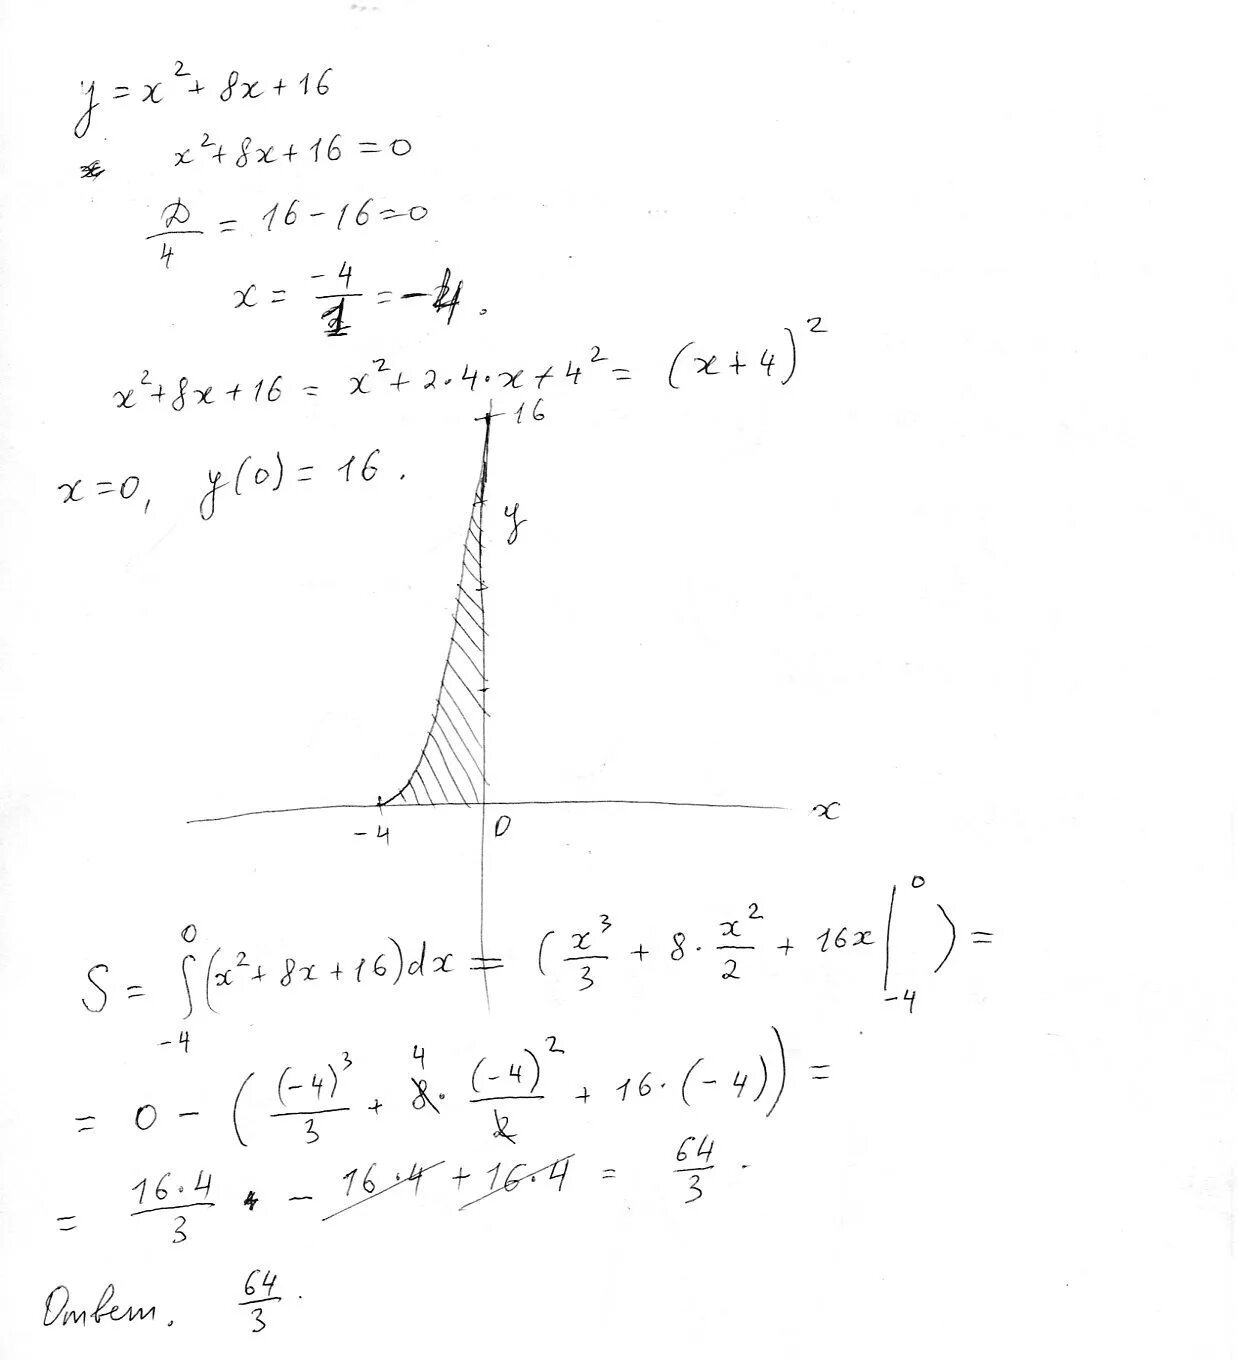 y = x² + 8x + 16
x² + 8x + 16 = 0
D/4 = 16 - 16 = 0
x = -4/1 = -4.
x² + 8x + 16 = x² + 2·4·x + 4² = (x + 4)²
16
x = 0, y(0) = 16.
y
-4 0 x
S = ∫₋₄⁰ (x² + 8x + 16)dx = (x³/3 + 8·x²/2 + 16x |₋₄⁰) =
= 0 - ((-4)³/3 + 8·(-4)²/2 + 16·(-4)) =
4
= 16·4/3 - 16·4 + 16·4 = 64/3.
Ответ. 64/3.